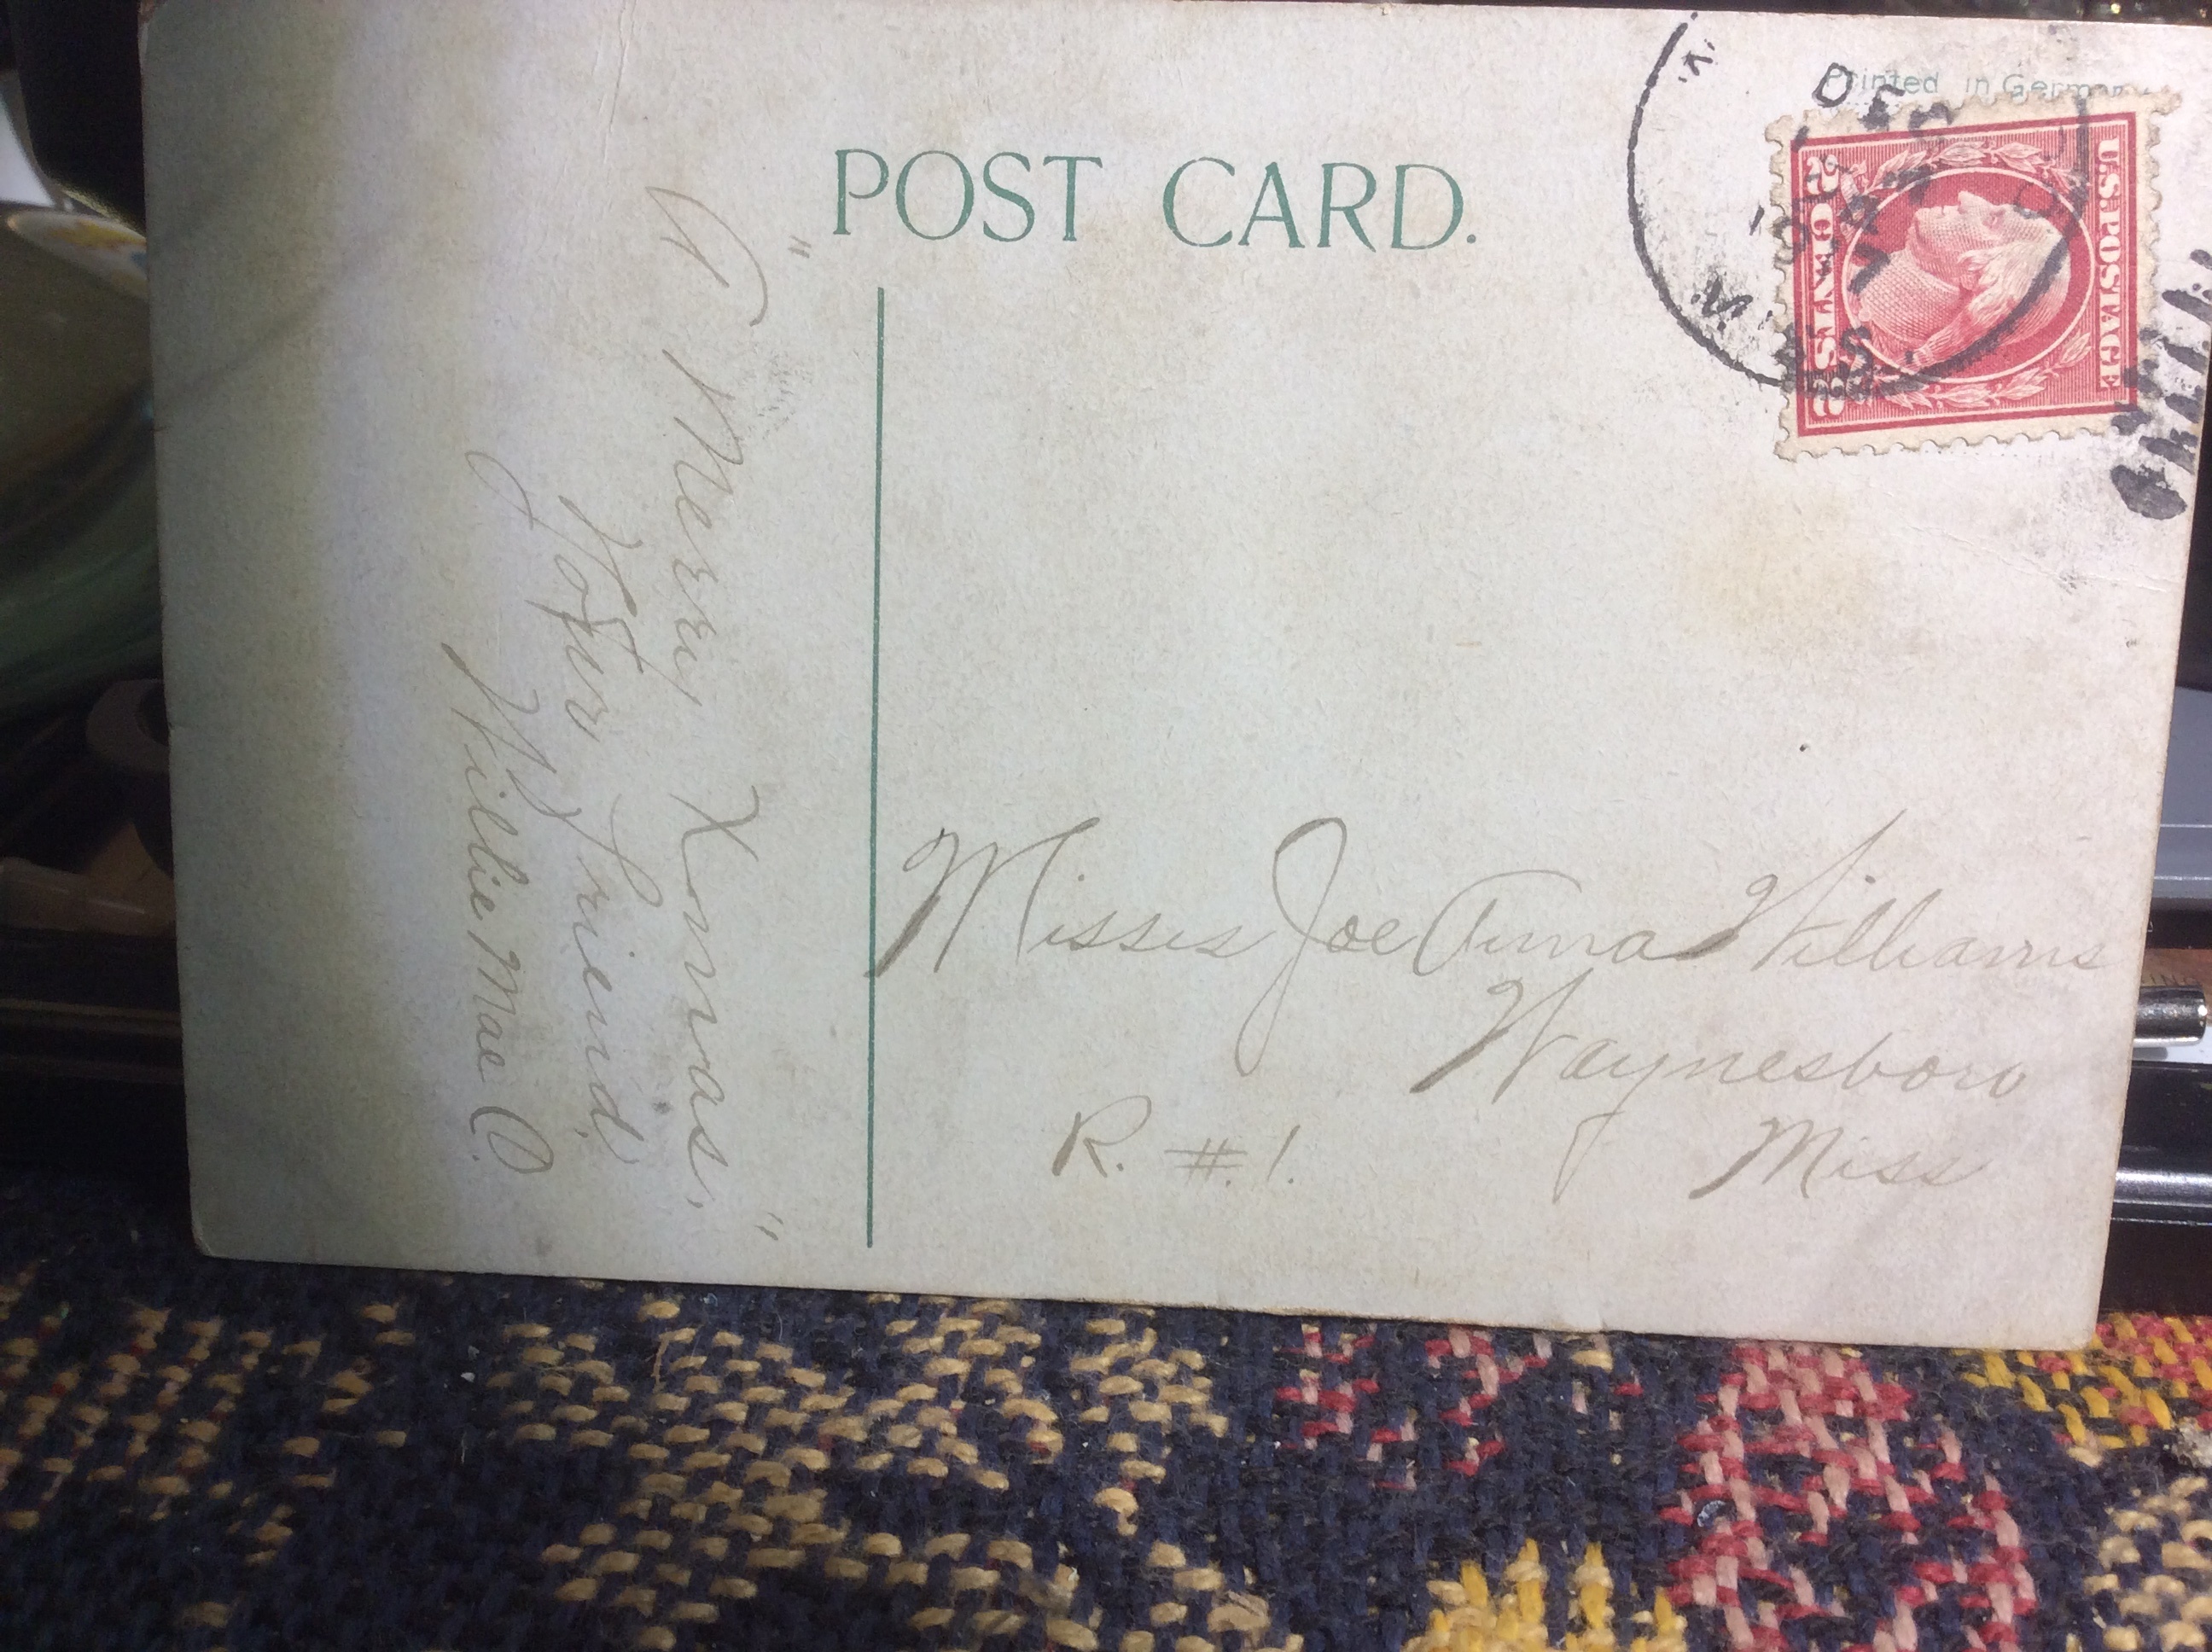 Printed in Germany
POST CARD.
U.S. POSTAGE
2 CENTS 2
DEC
MISS.
"A Merry Xmas,"
Your friend,
Willie Mae O.
Misses Joe Anna Williams
Waynesboro
R. #.1.
Miss